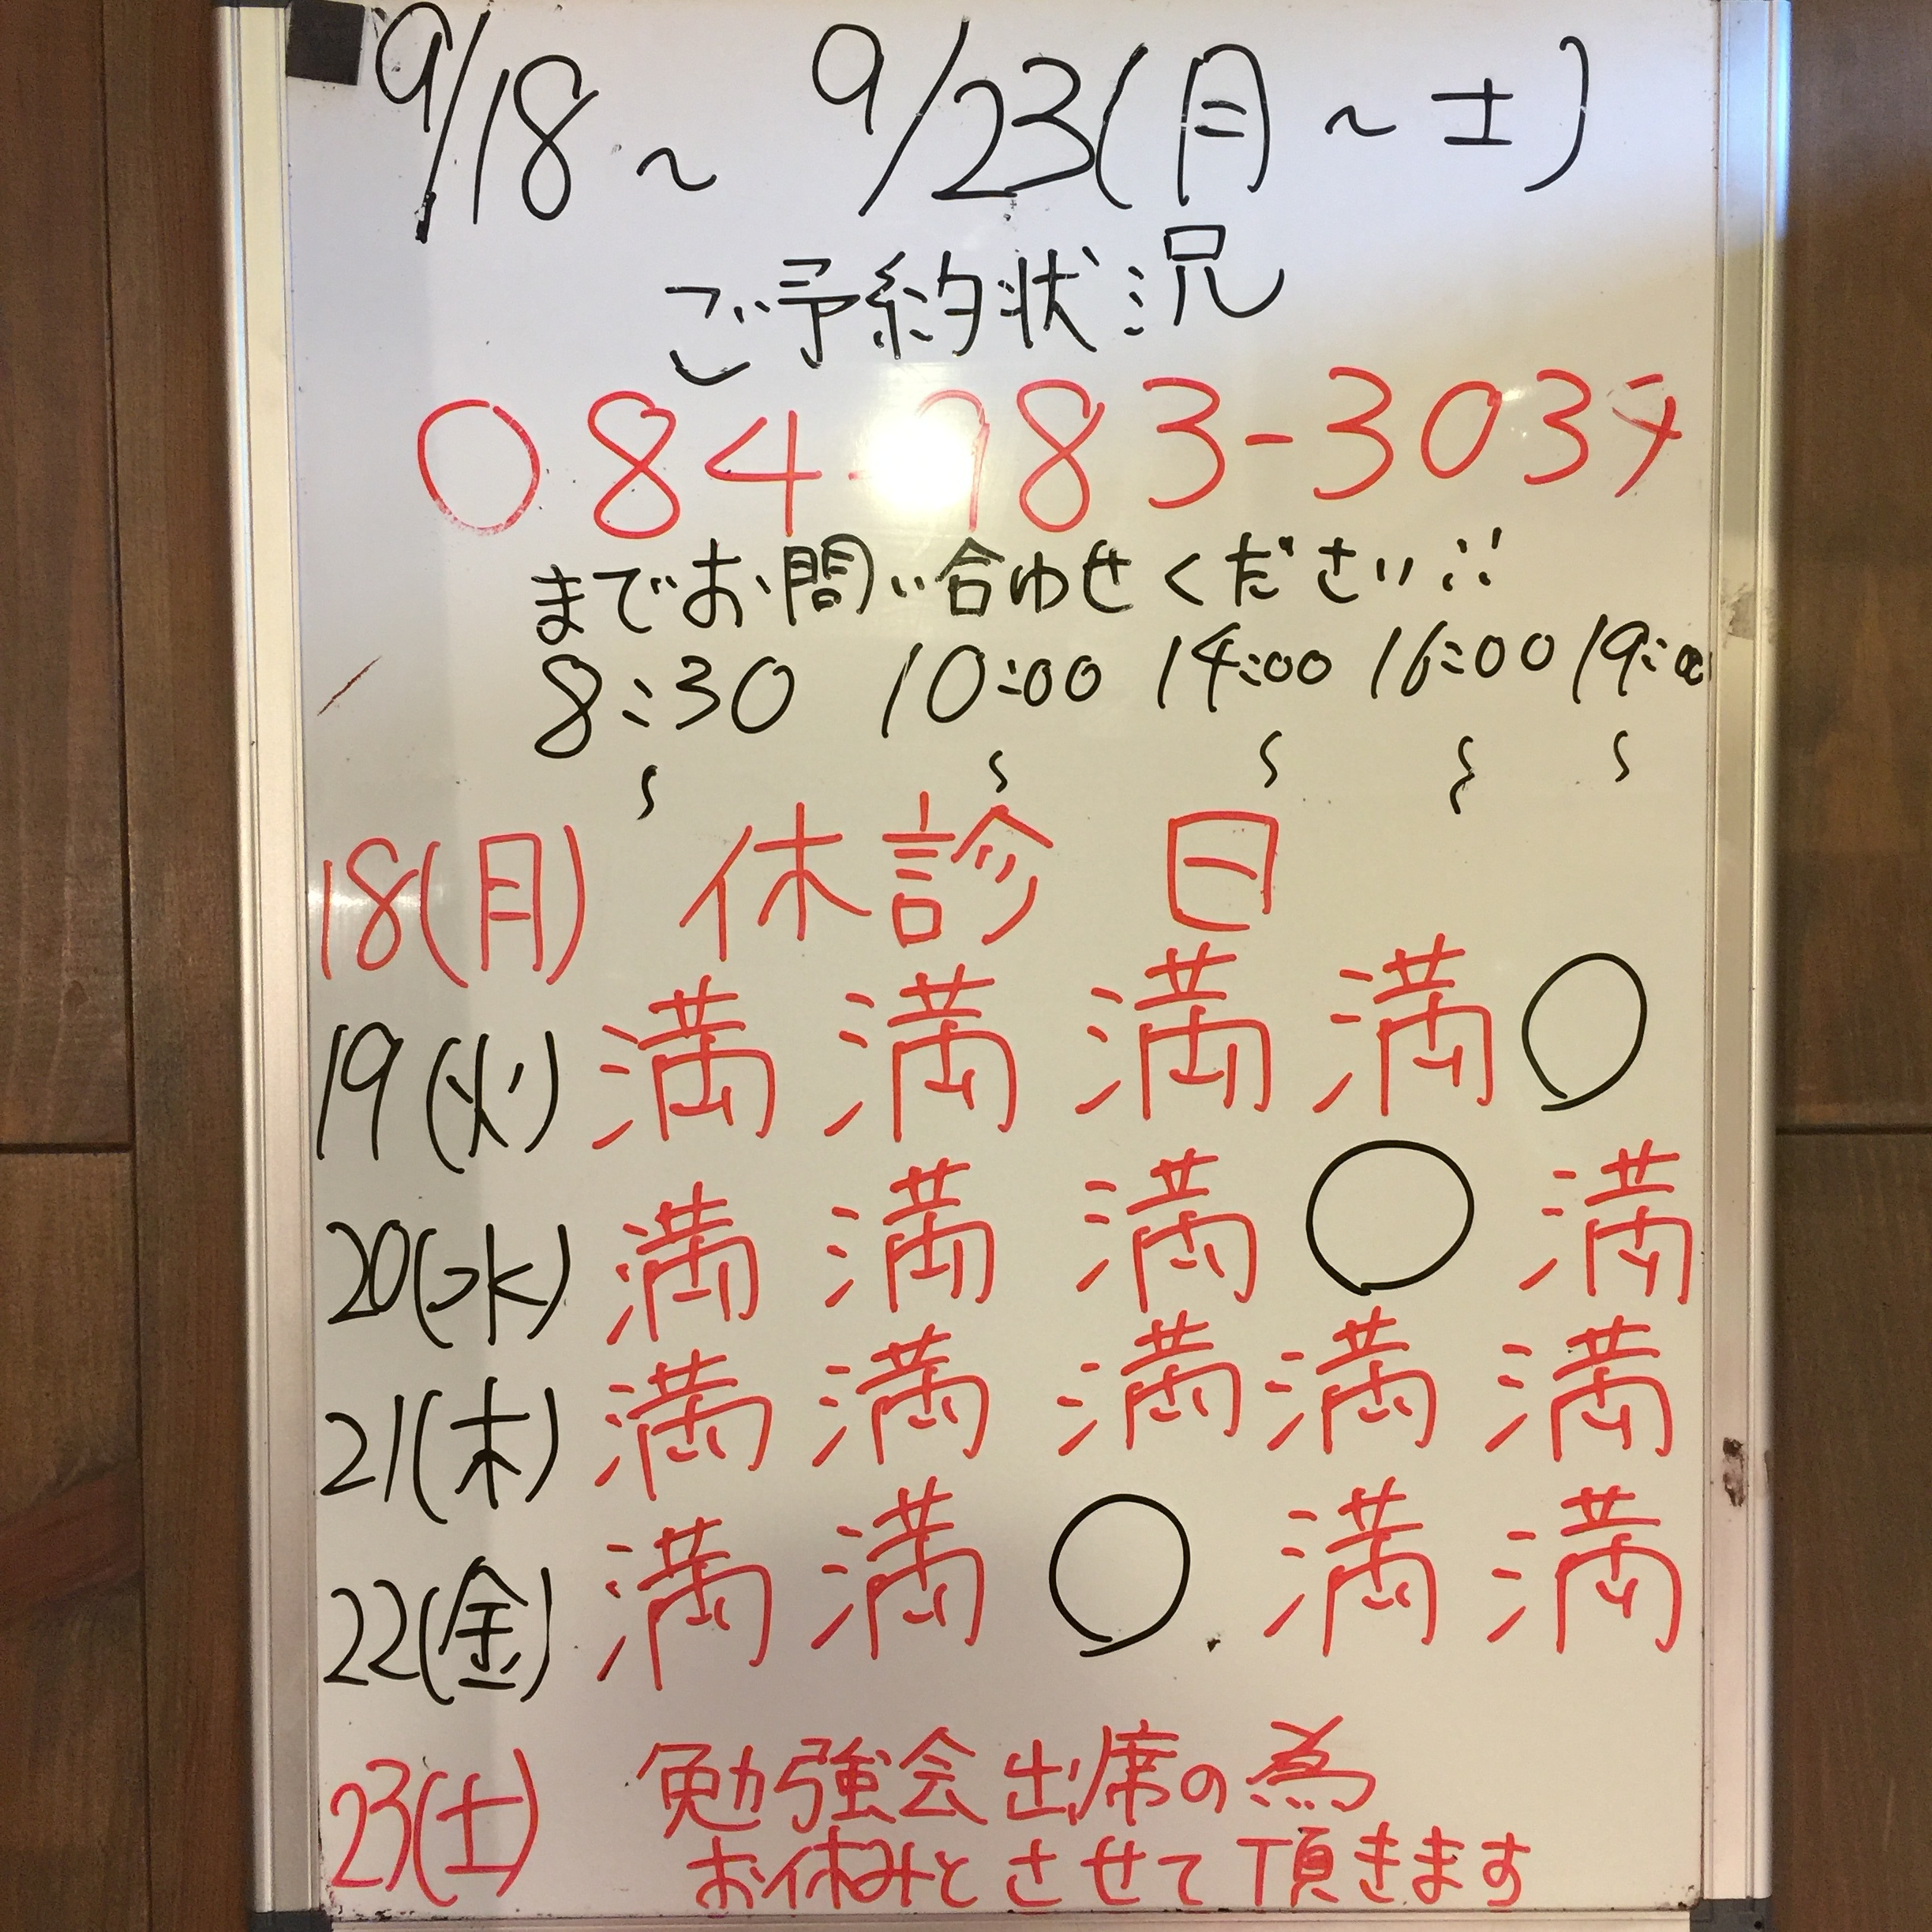 9/18~9/23(月~土)
ご予約状況
084-983-303
までお問い合わせください!!
8:30 10:00 14:00 16:00 19:00
~ ~ ~ ~ ~
18(月) 休診日
19(火) 満 満 満 満 ○
20(水) 満 満 満 ○ 満
21(木) 満 満 満 満 満
22(金) 満 満 ○ 満 満
23(土) 勉強会出席の為
お休みとさせて頂きます